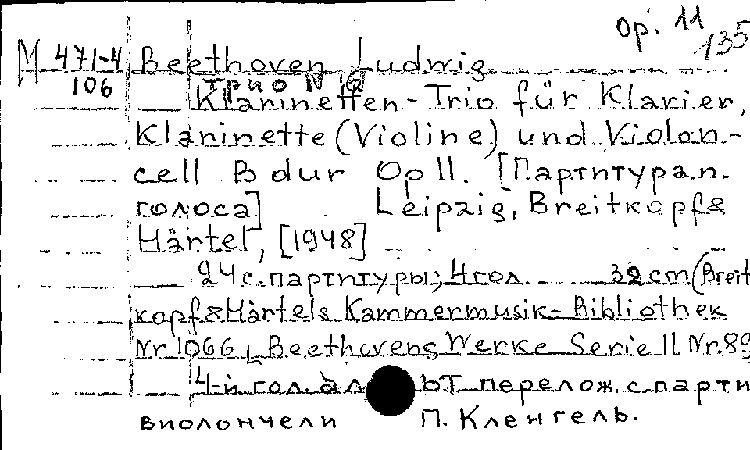 Op. 11
135
M 471-4 Beethoven Ludwig
106 Трио N
Klarinetten-Trio für Klavier,
Klarinette (Violine) und Violon-
cell B dur Op 11. [Партитура и
голоса] Leipzig, Breitkopf &
Härtel, [1948]
24 с. партитуры; 4 гол. 32 cm (Breit
kopf & Härtels Kammermusik-Bibliothek
Nr 1066, Beethovens Werke Serie 11 Nr. 89
4-й гол. ал ьт перелож. с парти
виолончели П. Кленгель.